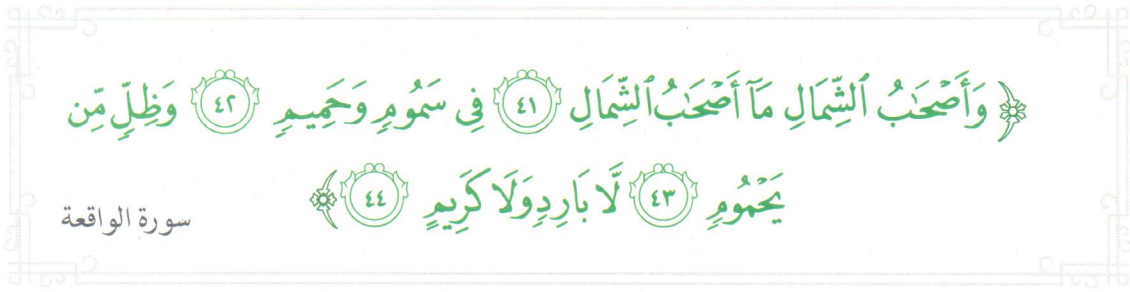 ﴿ وَأَصْحَٰبُ ٱلشِّمَالِ مَآ أَصْحَٰبُ ٱلشِّمَالِ ٤١ فِى سَمُومٍ وَحَمِيمٍ ٤٢ وَظِلٍّ مِّن
يَحْمُومٍ ٤٣ لَّا بَارِدٍ وَلَا كَرِيمٍ ٤٤ ﴾
سورة الواقعة